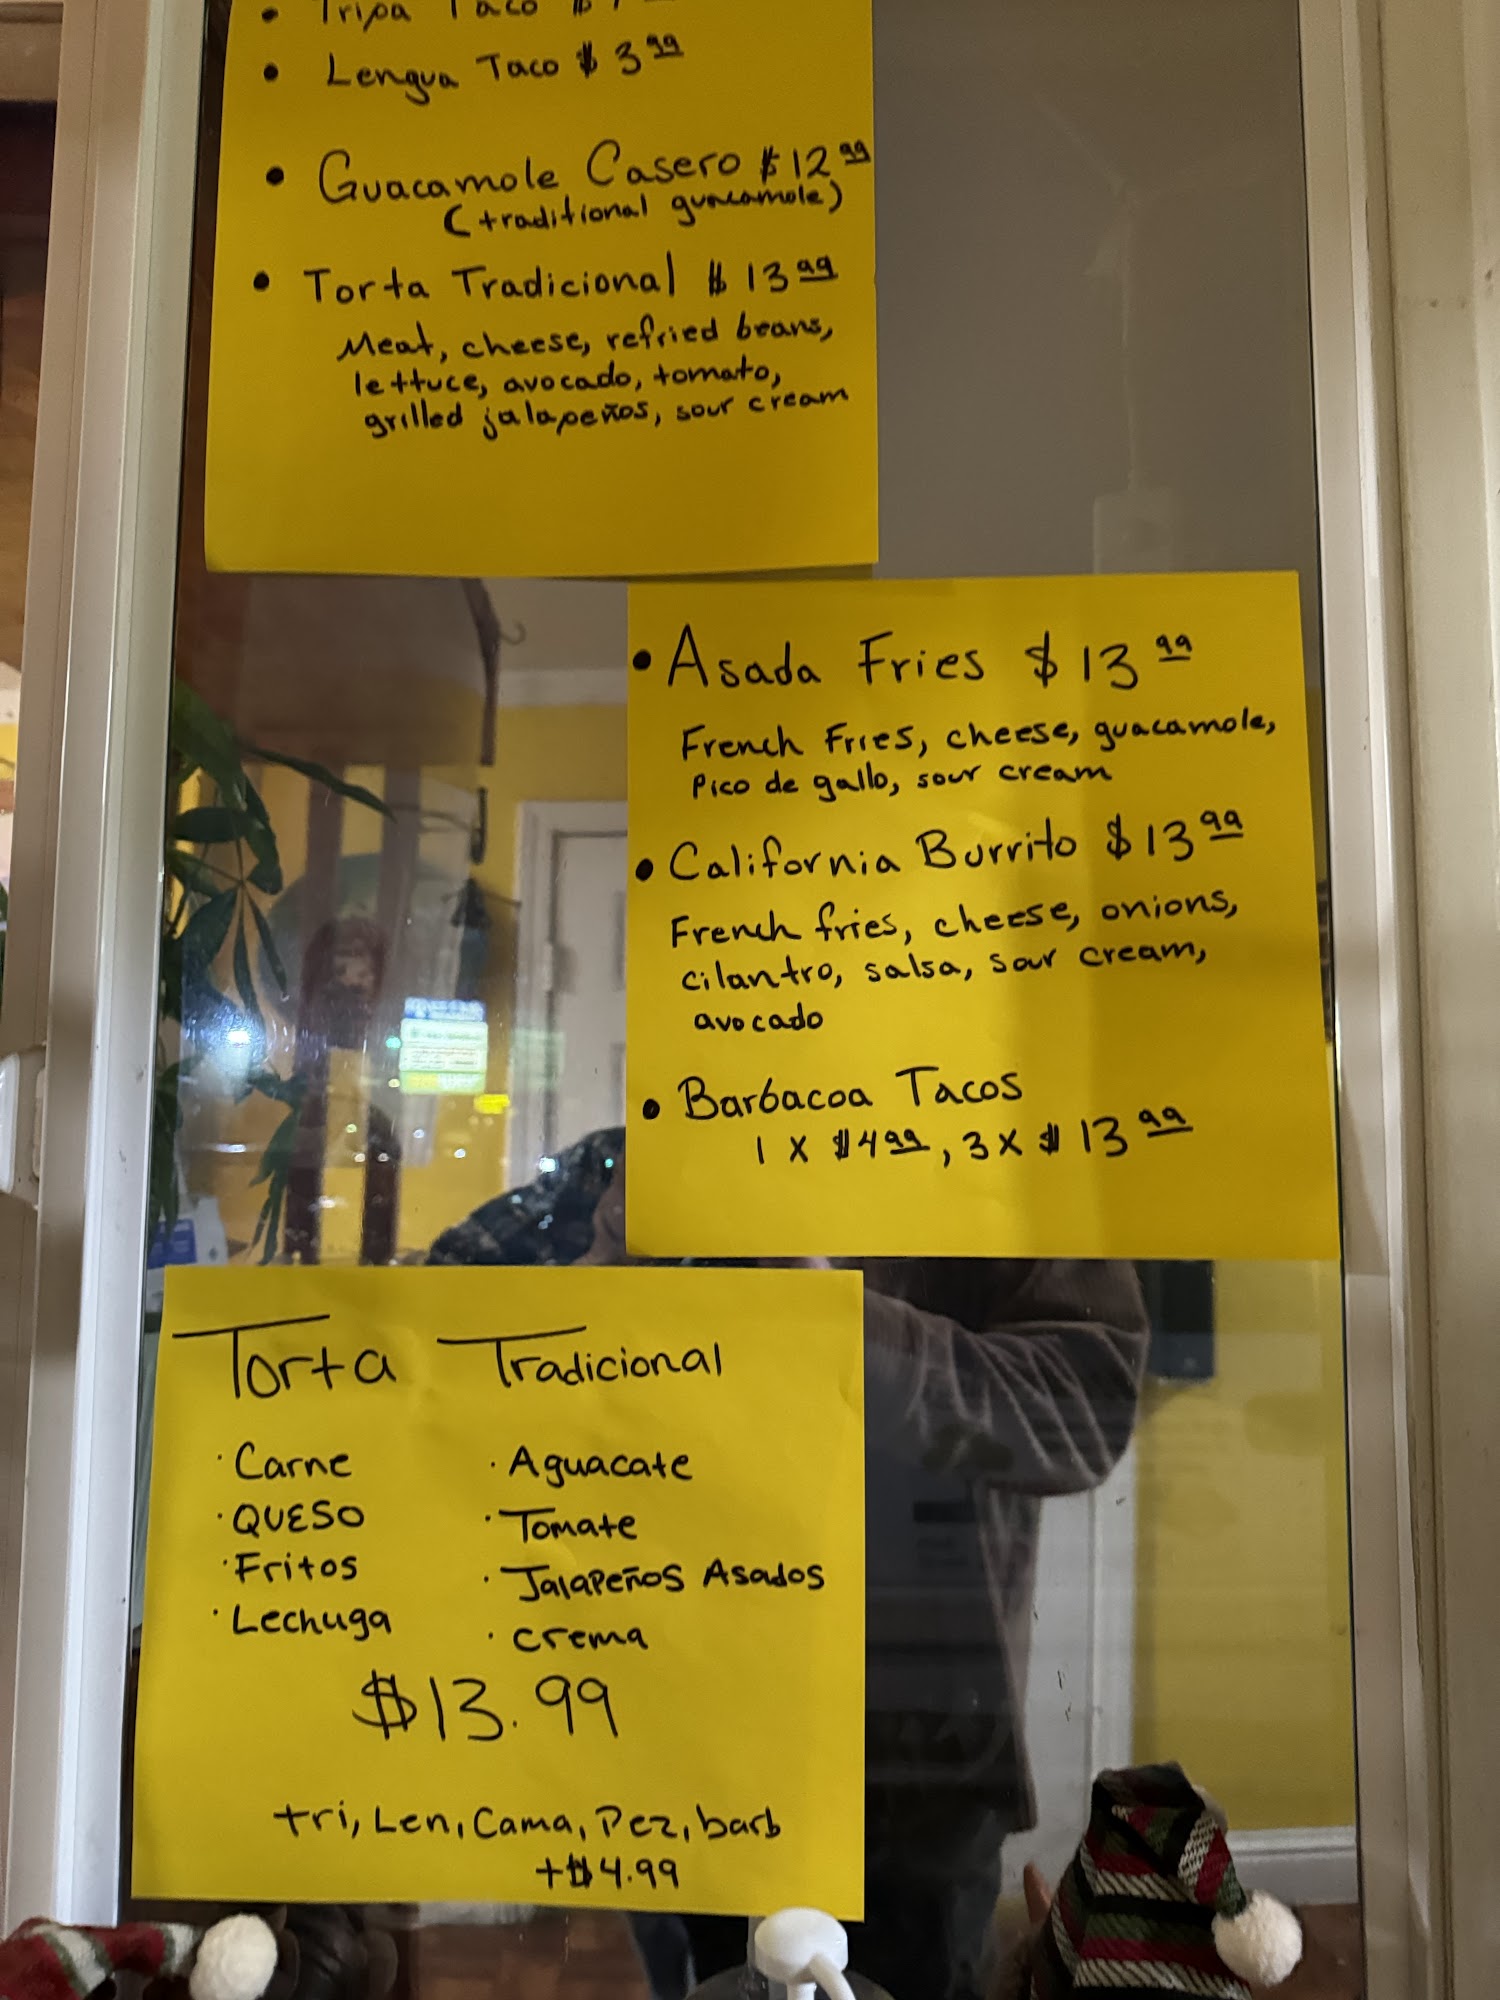 • Tripa Taco $
• Lengua Taco $3 99
• Guacamole Casero $12 99
(traditional guacamole)
• Torta Tradicional $13 99
Meat, cheese, refried beans,
lettuce, avocado, tomato,
grilled jalapeños, sour cream
• Asada Fries $13 99
French Fries, cheese, guacamole,
Pico de gallo, sour cream
• California Burrito $13 99
French fries, cheese, onions,
cilantro, salsa, sour cream,
avocado
• Barbacoa Tacos
1 x $4 99, 3 x $13 99
Torta Tradicional
· Carne · Aguacate
· QUESO · Tomate
· Fritos · Jalapeños Asados
· Lechuga · crema
$13.99
tri, Len, Cama, Pez, barb
+$4.99